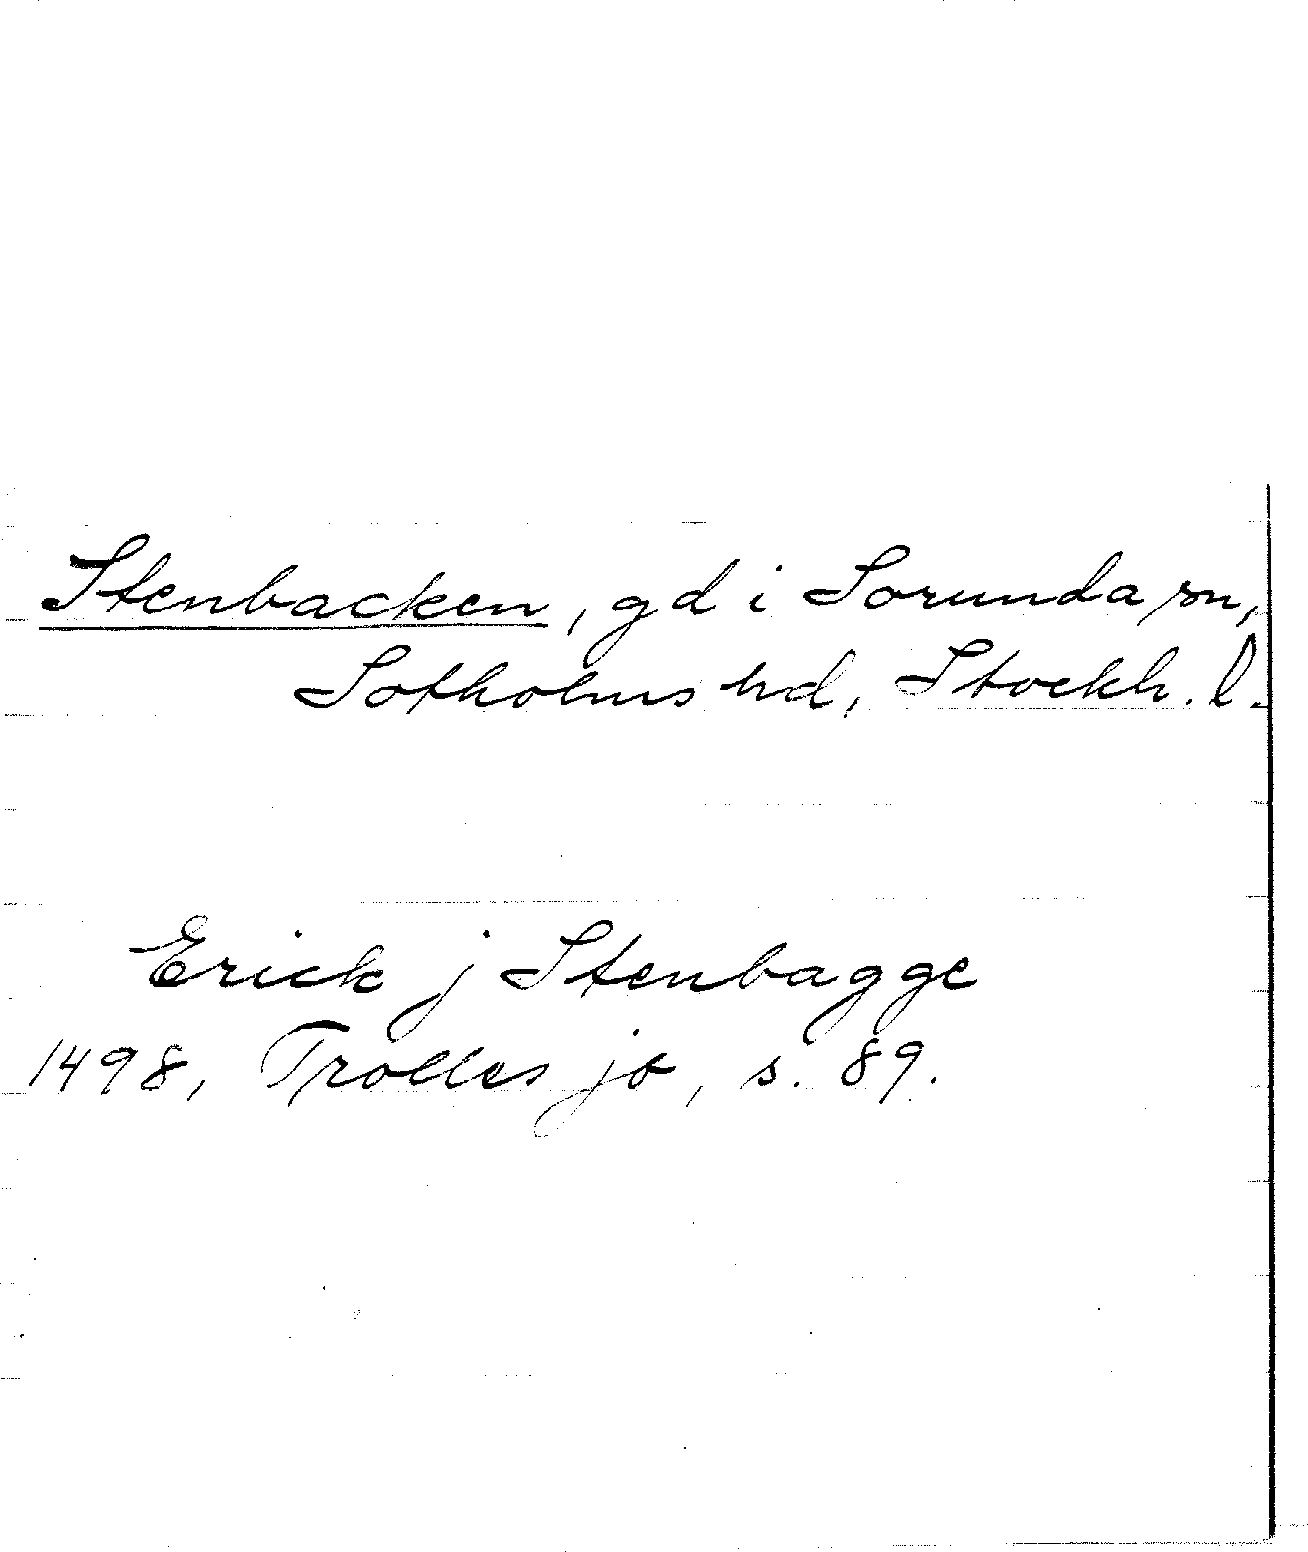 Stenbacken, gd i Sorunda sn,
Sotholms hd, Stockh. l.
Erick j Stenbagge
1498, Trolles jb, s. 89.